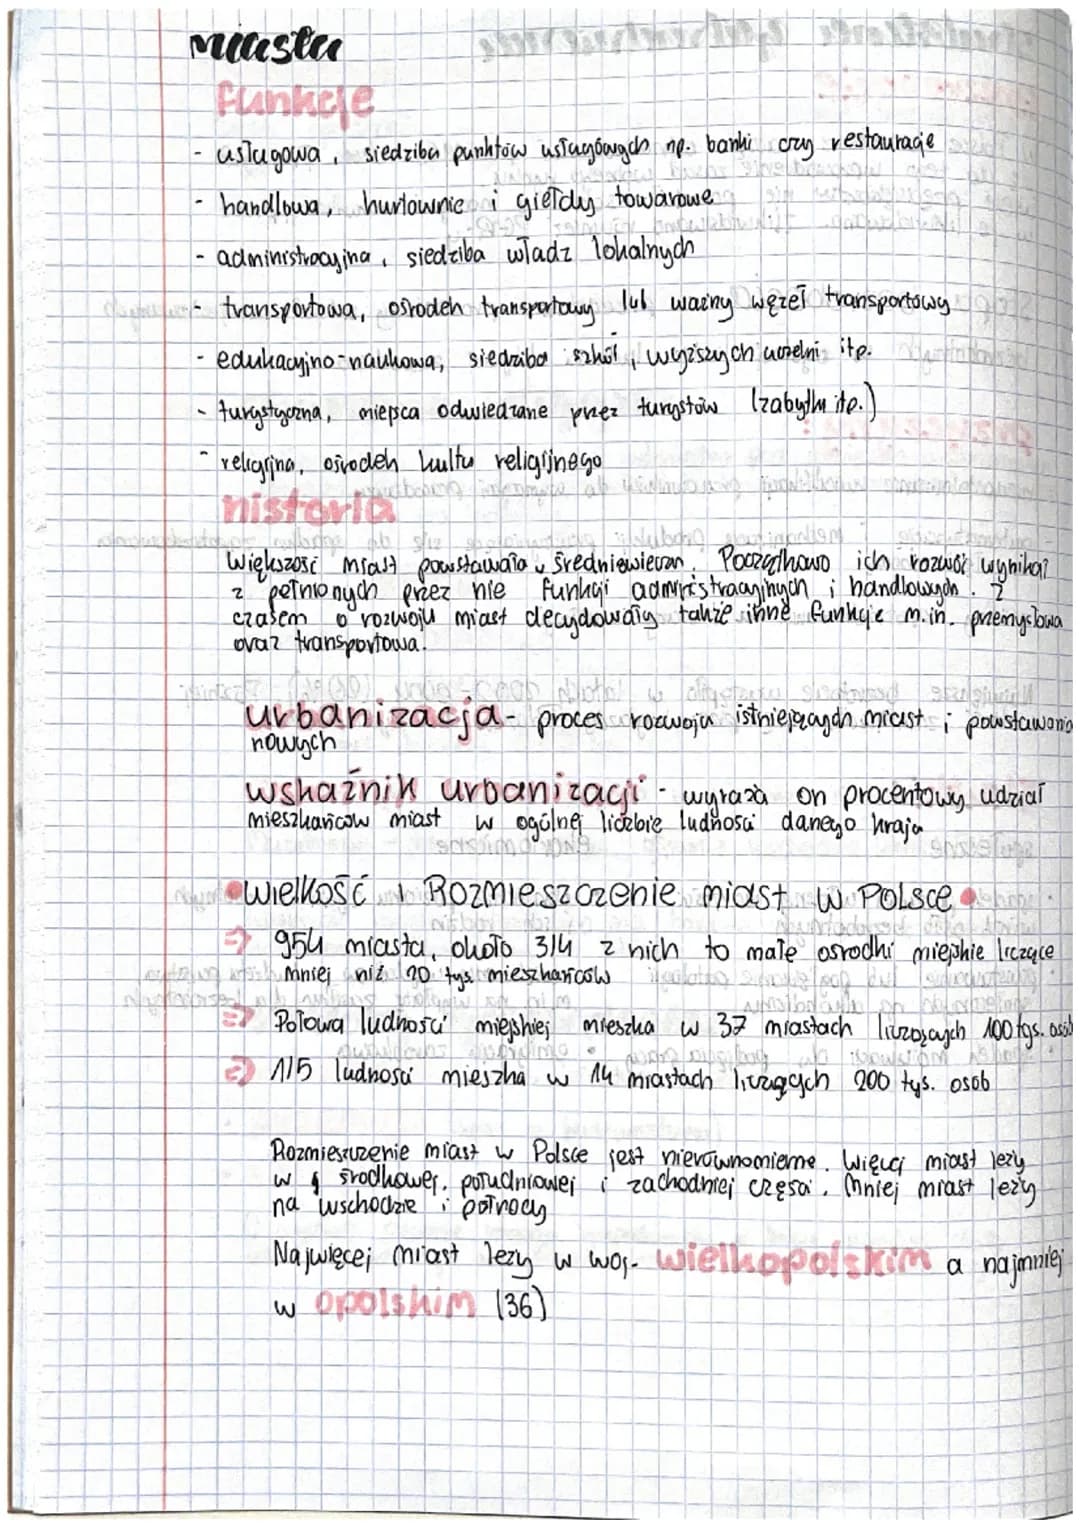 miasta
funkcje
- usługowa, siedziba punktów usługowych np. banki czy restauracje
- handlowa, hurtownie i giełdy towarowe
- administracyjna, siedziba władz lokalnych
- transportowa, ośrodek transportowy lub ważny węzeł transportowy
- edukacyjno-naukowa, siedziba szkół, wyższych uczelni itp.
- turystyczna, miejsca odwiedzane przez turystów (zabytki itp.)
- religijna, ośrodek kultu religijnego
historia
Większość miast powstawała w średniowieczn. Początkowo ich rozwój wynikał
z pełnionych przez nie funkcji administracyjnych i handlowych. Z
czasem o rozwoju miast decydowały także inne funkcje m.in. przemysłowa
oraz transportowa.
urbanizacja - proces rozwoju istniejących miast i powstawania
nowych
wskaźnik urbanizacji - wyraża on procentowy udział
mieszkańców miast w ogólnej liczbie ludności danego kraju
• Wielkość i Rozmieszczenie miast w Polsce •
⇒ 954 miasta, około 3/4 z nich to małe ośrodki miejskie liczące
mniej niż 20 tys. mieszkańców
⇒ Połowa ludności miejskiej mieszka w 37 miastach liczących 100 tys. osób
⇒ 1/5 ludności mieszka w 14 miastach liczących 200 tys. osób
Rozmieszczenie miast w Polsce jest nierównomierne. Więcej miast leży
w środkowej, południowej i zachodniej części. Mniej miast leży
na wschodzie i północy
Najwięcej miast leży w woj. wielkopolskim a najmniej
w opolskim (36)